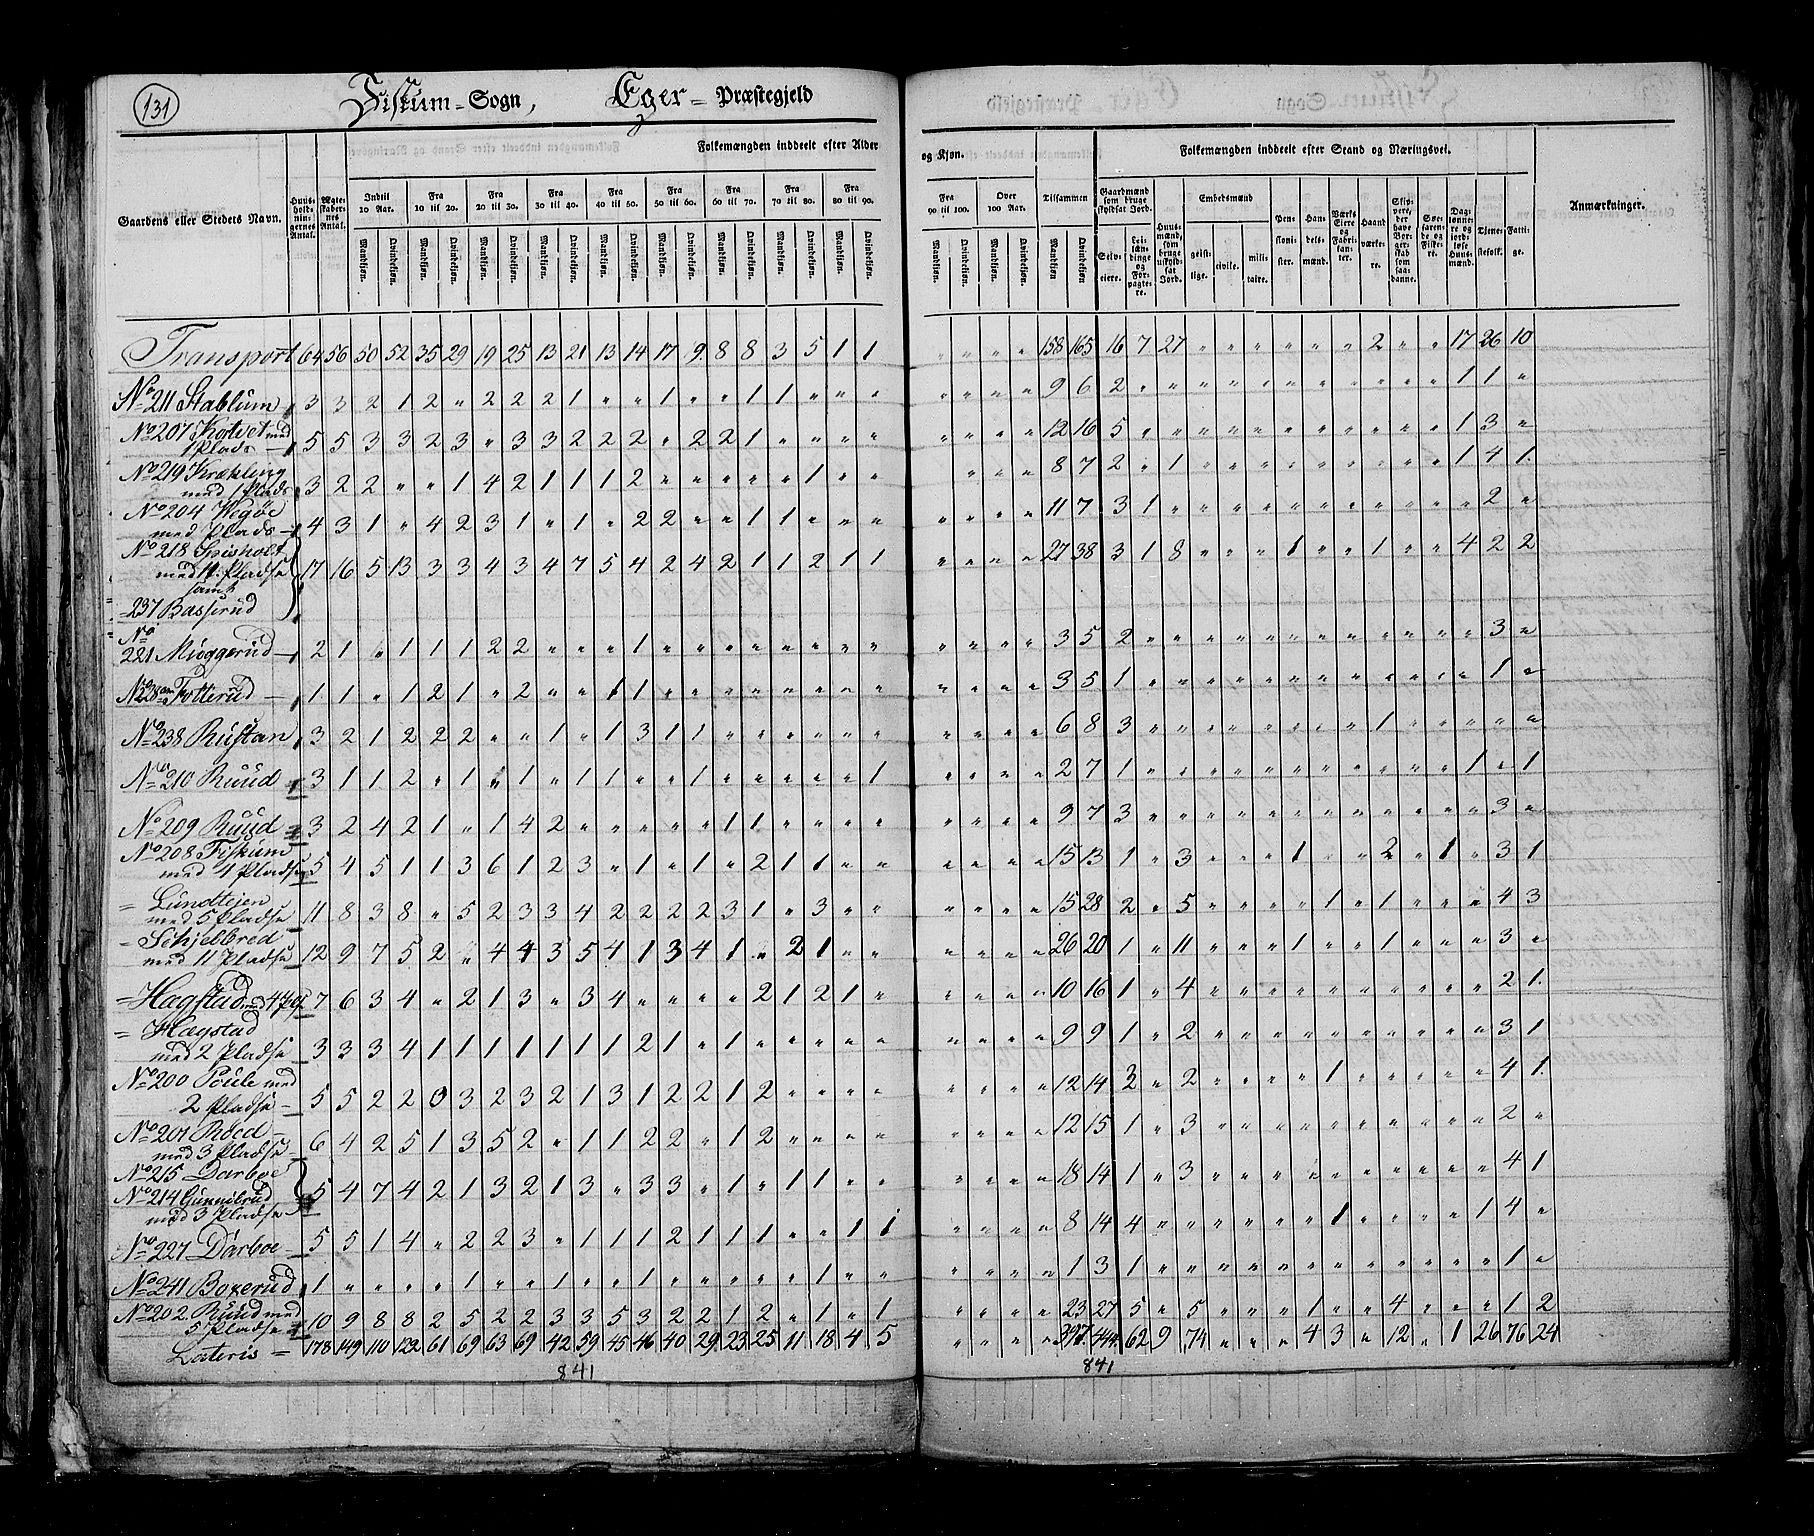 131
Fiskum - Sogn, Eger - Præstegjeld
Folkemængden inddeelt efter Alder og Kjøn.
Folkemængden inddeelt efter Stand og Næringsvei.
Gaardens eller Stedets Navn.
Huus-holdningernes Antal.
Ægteskabernes Antal.
Indtil 10 Aar.
Fra 10 til 20.
Fra 20 til 30.
Fra 30 til 40.
Fra 40 til 50.
Fra 50 til 60.
Fra 60 til 70.
Fra 70 til 80.
Fra 80 til 90.
Fra 90 til 100.
Over 100 Aar.
Tilsammen
Mandkjøn. Qvindekjøn.
Gaardmænd som bruge skyldsat Jord.
Selveiere.
Leilændinge og Forpagtere.
Huusmænd, som bruge uskyldsat Jord.
Embedsmænd
geistlige. civile. militaire.
Pensionister.
Handelsmænd.
Værks Eiere og Fabrikanter.
Haandværkere.
Skippere, der have Borgerskab som saadanne.
Søefarende og Fiskere.
Daglønnere og jordløse Huusmænd.
Tjenestefolk.
Fattige.
Anmærkninger.
Transport 64 56 50 52 35 29 19 25 13 21 13 14 17 9 8 8 3 5 1 1 " " " " 158 165 16 7 27 " " " " " " 2 " " 17 26 10
No 211 Stablum 3 3 2 1 2 " 2 2 2 1 " " 1 " " 1 1 " " " " " " " 9 6 2 " " " " " " " " " " " 1 1 "
No 207 Kortvet med 1 Plads 5 5 3 3 2 3 " 3 3 2 2 2 " 2 2 1 " " " " " " " " 12 16 5 " " " " " " " " " " " 1 3 "
No 219 Krækling med 1 Plads 3 2 2 " " 1 4 2 1 1 1 2 " " " " " 1 " " " " " 8 7 2 " 1 " " " " " " " " " 1 4 1
No 204 Wegøe med Plads 4 3 1 " 4 2 3 1 " 1 " 2 2 " " 1 1 " " " " " " " 11 7 3 1 " " " " " " " " " " " 2 "
No 218 Spisholt med 11 Pladse samt 17 16 5 13 3 3 4 3 4 7 5 4 2 4 2 1 1 2 1 1 " " " " 27 38 3 1 8 " " " 1 " " 1 " " 4 2 2
237 Basserud
No 221 Muggerud 2 1 " 1 1 1 2 2 " " " 1 " " " " " " " " " " " " 3 5 2 " " " " " " " " " " " " 3 "
No 228 Totterud 1 1 " 1 2 1 " 2 " " 1 1 " " " " " " " " " " " " 3 5 1 " " " " " " " " " " " " 1 "
No 238 Rustan 3 2 1 2 2 2 " " 1 " 1 3 1 1 " " " " " " " " " " 6 8 3 " " " " " " " " 1 " " " " "
No 210 Ruud 3 1 1 2 " 1 " 1 " 1 1 " " 1 " " " " " 1 " " " " 2 7 1 " " " " " " " " " " " 1 " 1
No 209 Ruud 3 2 4 2 1 " 1 4 2 " " " " " 1 1 " " " " " " " " 9 7 3 " " " " " " " " " " " " 3 "
No 208 Fiskum med 4 Pladse 5 4 5 1 1 3 6 1 2 3 " 1 " 1 " 2 1 1 " " " " " " 15 13 1 " 3 " " " 1 " " 2 " 1 " 3 1
" Lundtejen med 5 Pladse 11 8 3 8 " 5 2 3 3 4 2 2 2 2 3 1 " 3 " " " " " " 15 28 2 " 5 " " " " 1 " 1 " " " 4 3
" Schjelbred med 11 Pladse 12 9 7 5 2 " 4 4 3 5 4 1 3 4 1 " 2 1 " " " " " " 26 20 1 " 11 " " " 1 " " 1 " " " 3 "
" Hagstad 7 6 3 4 " 2 1 3 " 3 4 " " " " 2 1 2 1 " " " " " 10 16 1 " 4 " " " " " " " " " " 2 1
" Hægstad med 2 Pladse 3 3 3 4 1 1 1 1 1 1 1 2 1 " 1 " " " " " " " " " 9 9 1 " 2 " " " " " " " " " " 3 1
No 200 Poule med 2 Pladse 5 5 2 2 0 3 2 3 2 1 3 1 2 2 1 2 " " " " " " " " 12 14 3 " 2 " " " " 1 " " " " " 4 1
No 201 Roed med 3 Pladse 6 4 2 5 1 3 5 2 " 1 1 2 2 " 1 2 " " " " " " " " 12 15 1 " 3 " " " " " " " " " " 2 "
No 215 Darboe
No 214 Gunnibrud med 3 Pladse 5 4 7 4 2 1 3 2 1 3 " 3 3 " 1 " 1 1 " " " " " " 18 14 1 " 3 " " " " " " " " " " 4 1
No 227 Darboe 5 5 1 4 " 2 2 3 " 1 1 1 2 1 1 1 " " 1 1 " " " " 8 14 4 " " " " " " 1 " " " " 1 4 "
No 241 Boxerud 1 " " " " 1 " " 1 " " 1 " " " " " 1 " " " " " " 1 3 1 " " " " " " " " " " " " 1 "
No 202 Ruud med 5 Pladse 10 9 8 8 2 5 2 2 3 3 5 3 2 2 1 2 " 1 " 1 " " " " 23 27 5 " 5 " " " 1 " " 4 " " " 1 2
Lateris 178 149 110 122 61 69 63 69 42 59 45 46 40 29 23 25 11 18 4 5 " " " " 397 444 62 9 74 " " " 4 3 " 12 " 1 26 76 24
841 841